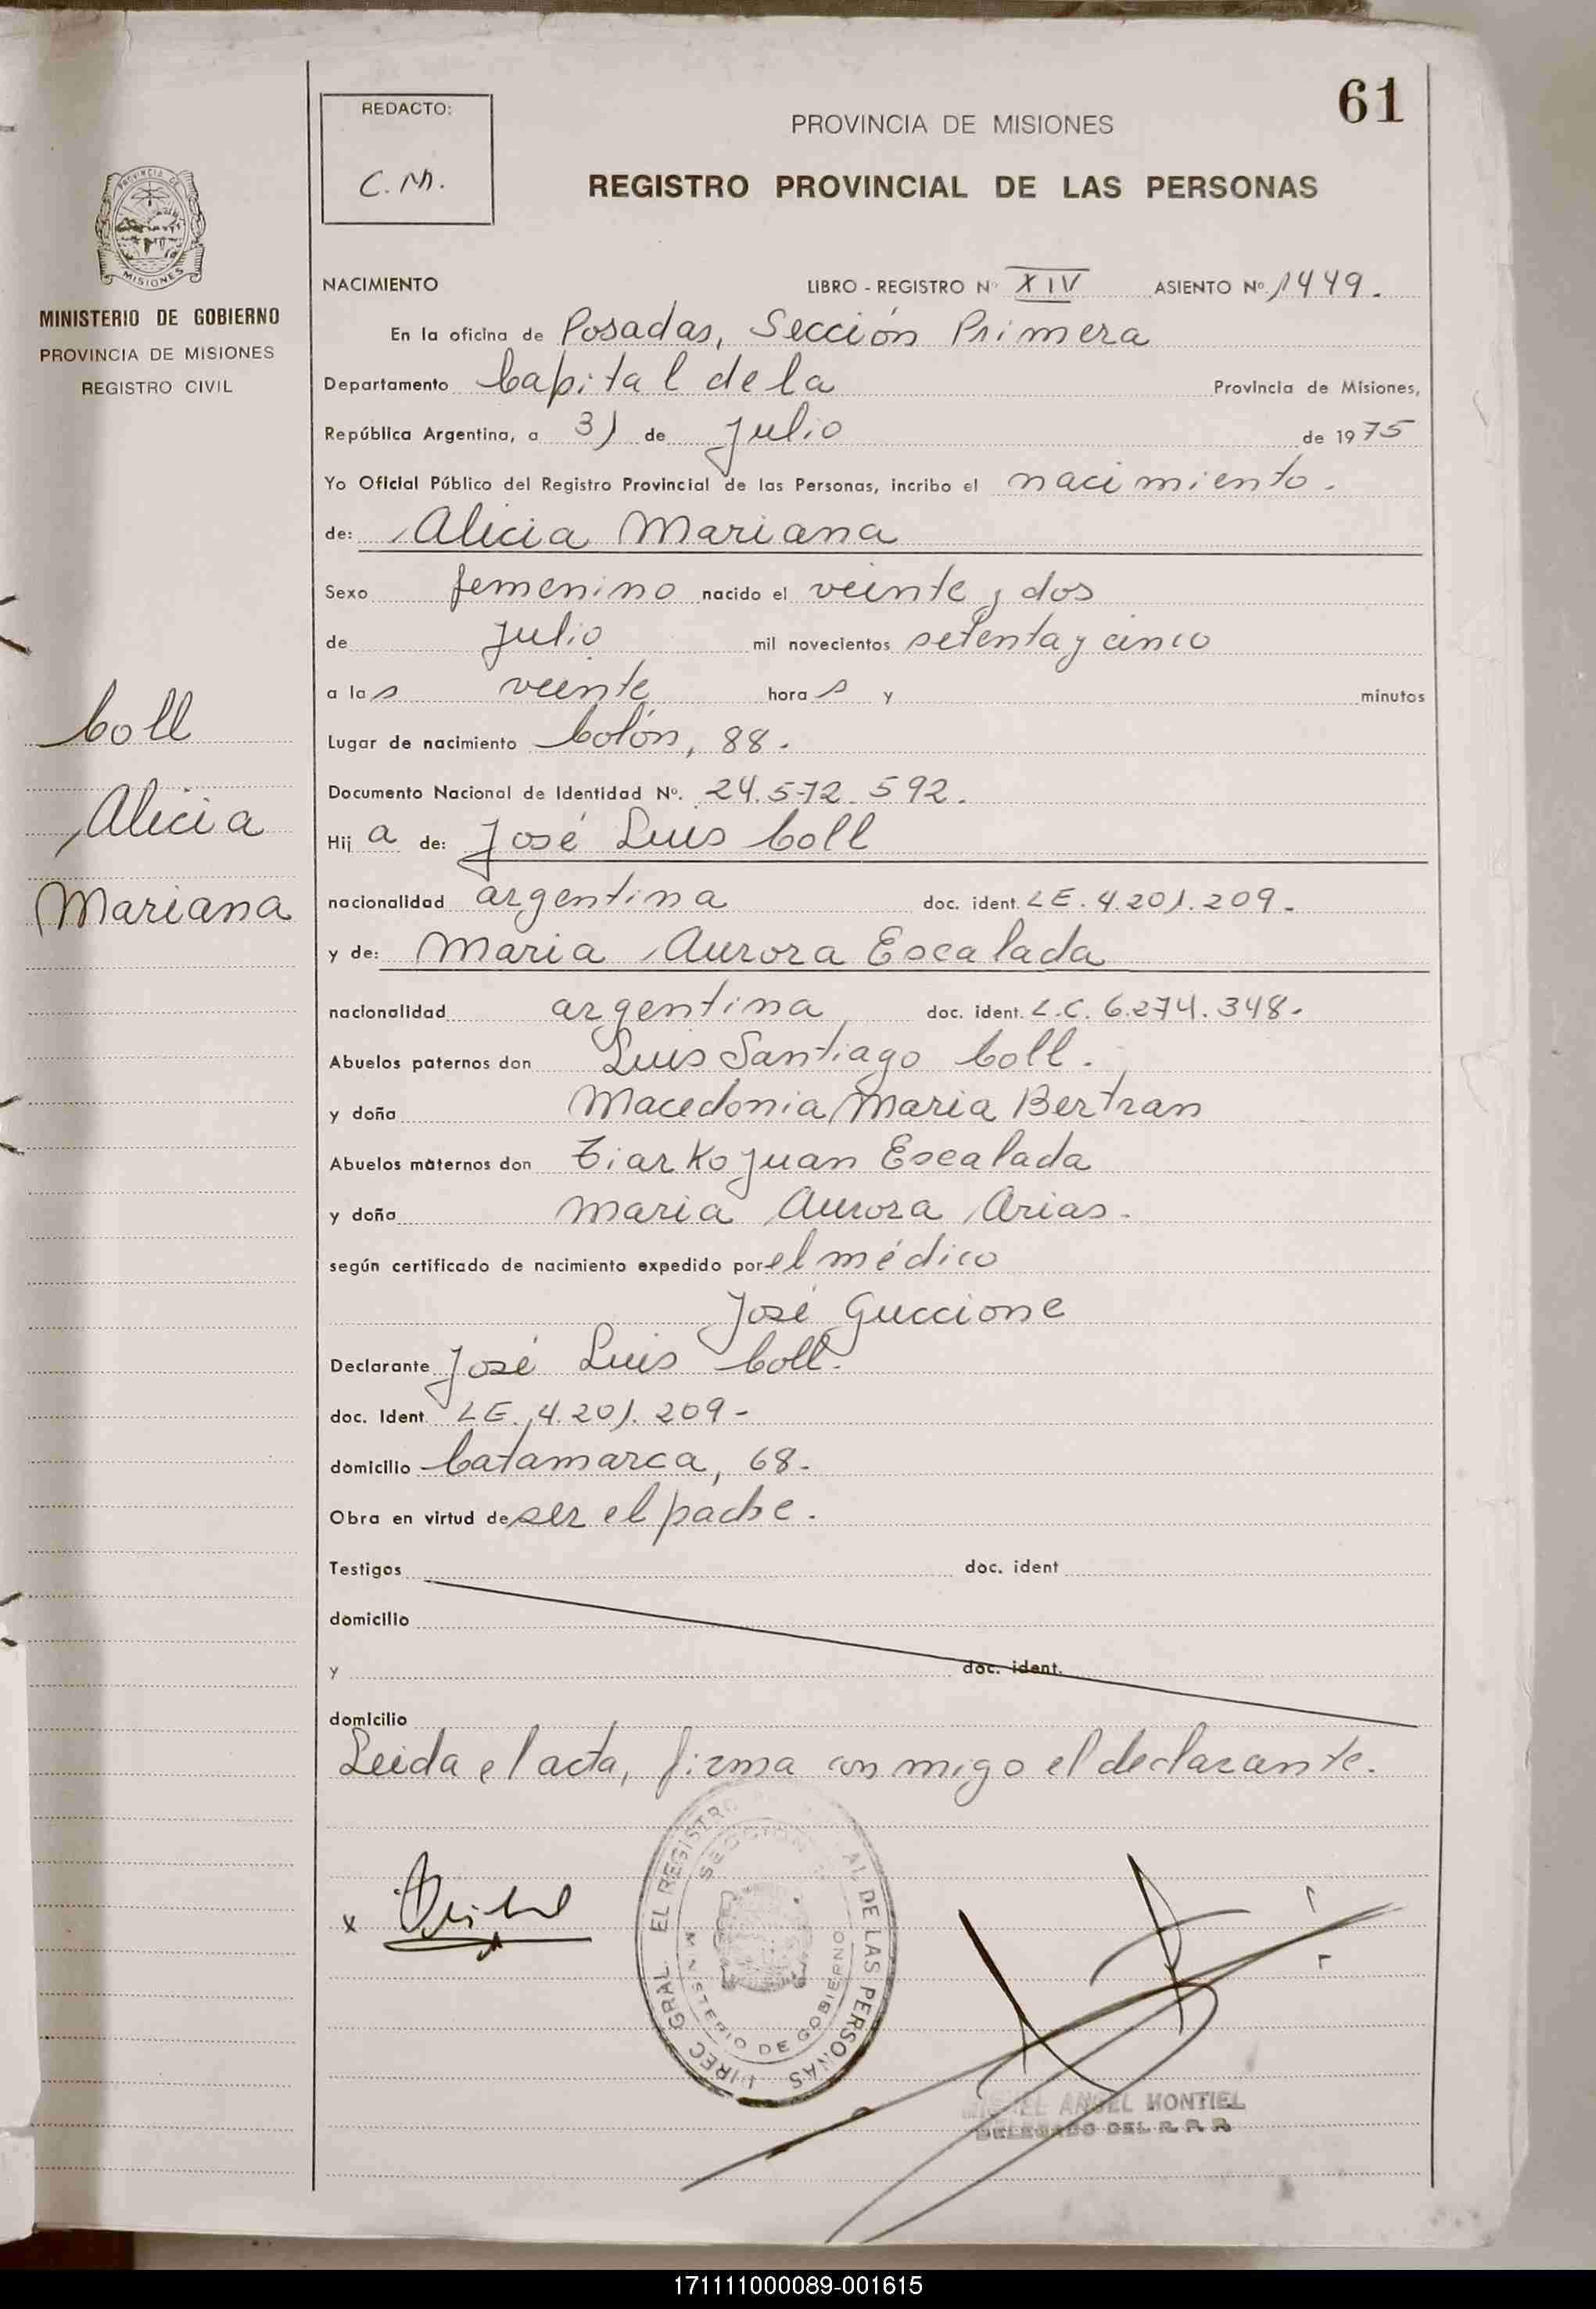 61
REDACTO:
C.M.
PROVINCIA DE MISIONES
REGISTRO PROVINCIAL DE LAS PERSONAS
PROVINCIA DE
MISIONES
MINISTERIO DE GOBIERNO
PROVINCIA DE MISIONES
REGISTRO CIVIL
Coll
Alicia
Mariana
NACIMIENTO LIBRO - REGISTRO Nº XIV ASIENTO Nº 1449.
En la oficina de Posadas, Sección Primera
Departamento Capital de la Provincia de Misiones,
República Argentina, a 31 de Julio de 1975
Yo Oficial Público del Registro Provincial de las Personas, incribo el nacimiento.
de: Alicia Mariana
Sexo femenino nacido el veinte y dos
de Julio mil novecientos setenta y cinco
a las veinte horas y minutos
Lugar de nacimiento Colón, 88.
Documento Nacional de Identidad Nº. 24.572.592.
Hija de: José Luis Coll
nacionalidad argentina doc. ident. LE. 4.201.209.-
y de: Maria Aurora Escalada
nacionalidad argentina doc. ident. L.C. 6.274.348.-
Abuelos paternos don Luis Santiago Coll.
y doña Macedonia Maria Bertran
Abuelos maternos don Tiarko Juan Escalada
y doña Maria Aurora Arias.
según certificado de nacimiento expedido por el médico
José Guccione
Declarante José Luis Coll.
doc. Ident. LE. 4.201.209-
domicilio Catamarca, 68.
Obra en virtud de ser el padre.
Testigos doc. ident
domicilio
y doc. ident.
domicilio
Leida el acta, firma conmigo el declarante.
x
DIREC GRAL EL REGISTRO AL DE LAS PERSONAS
SECCION
MINISTERIO DE GOBIERNO
MIGUEL ANGEL MONTIEL
DELEGADO DEL R.P.P.
171111000089-001615